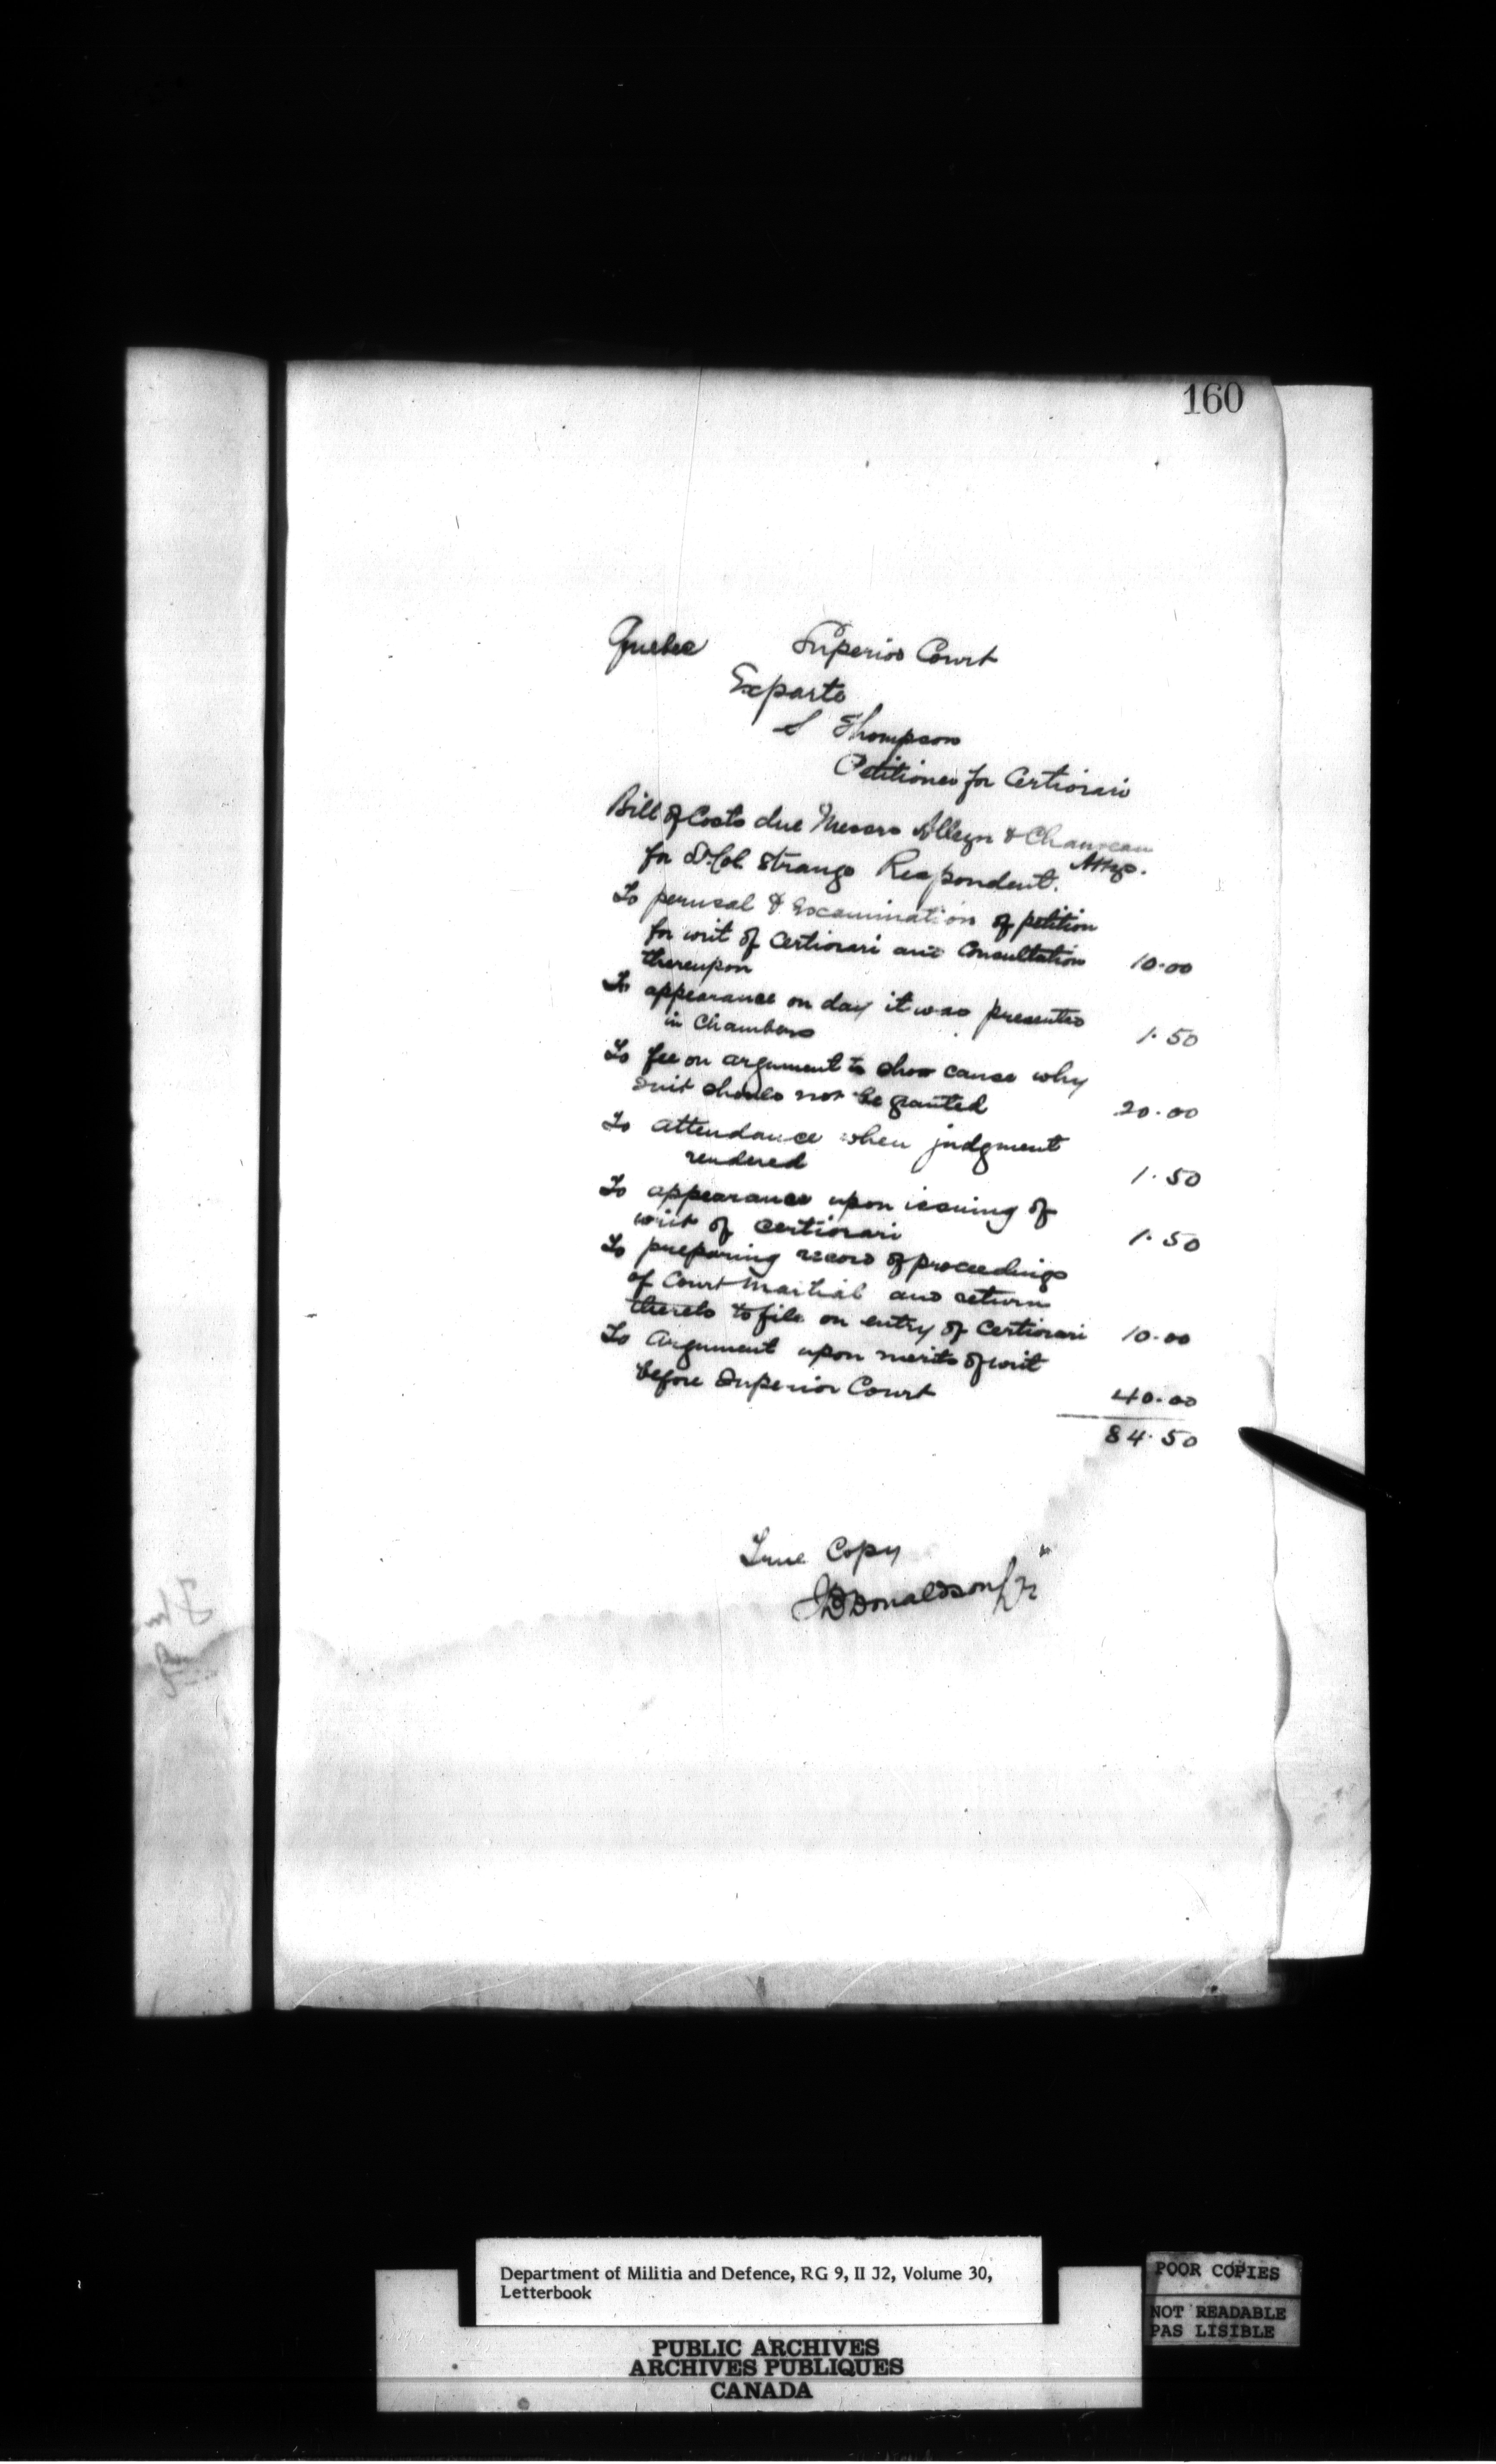 160
Quebec Superior Court
Exparte
S Thompson
Petitioner for Certiorari
Bill of Costs due Messrs Alleyn & Chauveau
Attys.
for Lt. Col. Strange Respondent.
To perusal & Examination of petition
for writ of Certiorari and Consultation
thereupon 10.00
To appearance on day it was presented
in Chambers 1.50
To fee on argument to show cause why
suit should not be granted 20.00
To attendance when judgment
rendered 1.50
To appearance upon issuing of
writ of certiorari 1.50
To preparing record of proceedings
of Court Martial and return
thereto to file on entry of Certiorari 10.00
To Argument upon merits of writ
before Superior Court 40.00
84.50
True Copy
JBDonaldson
Department of Militia and Defence, RG 9, II J2, Volume 30,
Letterbook
PUBLIC ARCHIVES
ARCHIVES PUBLIQUES
CANADA
POOR COPIES
NOT READABLE
PAS LISIBLE